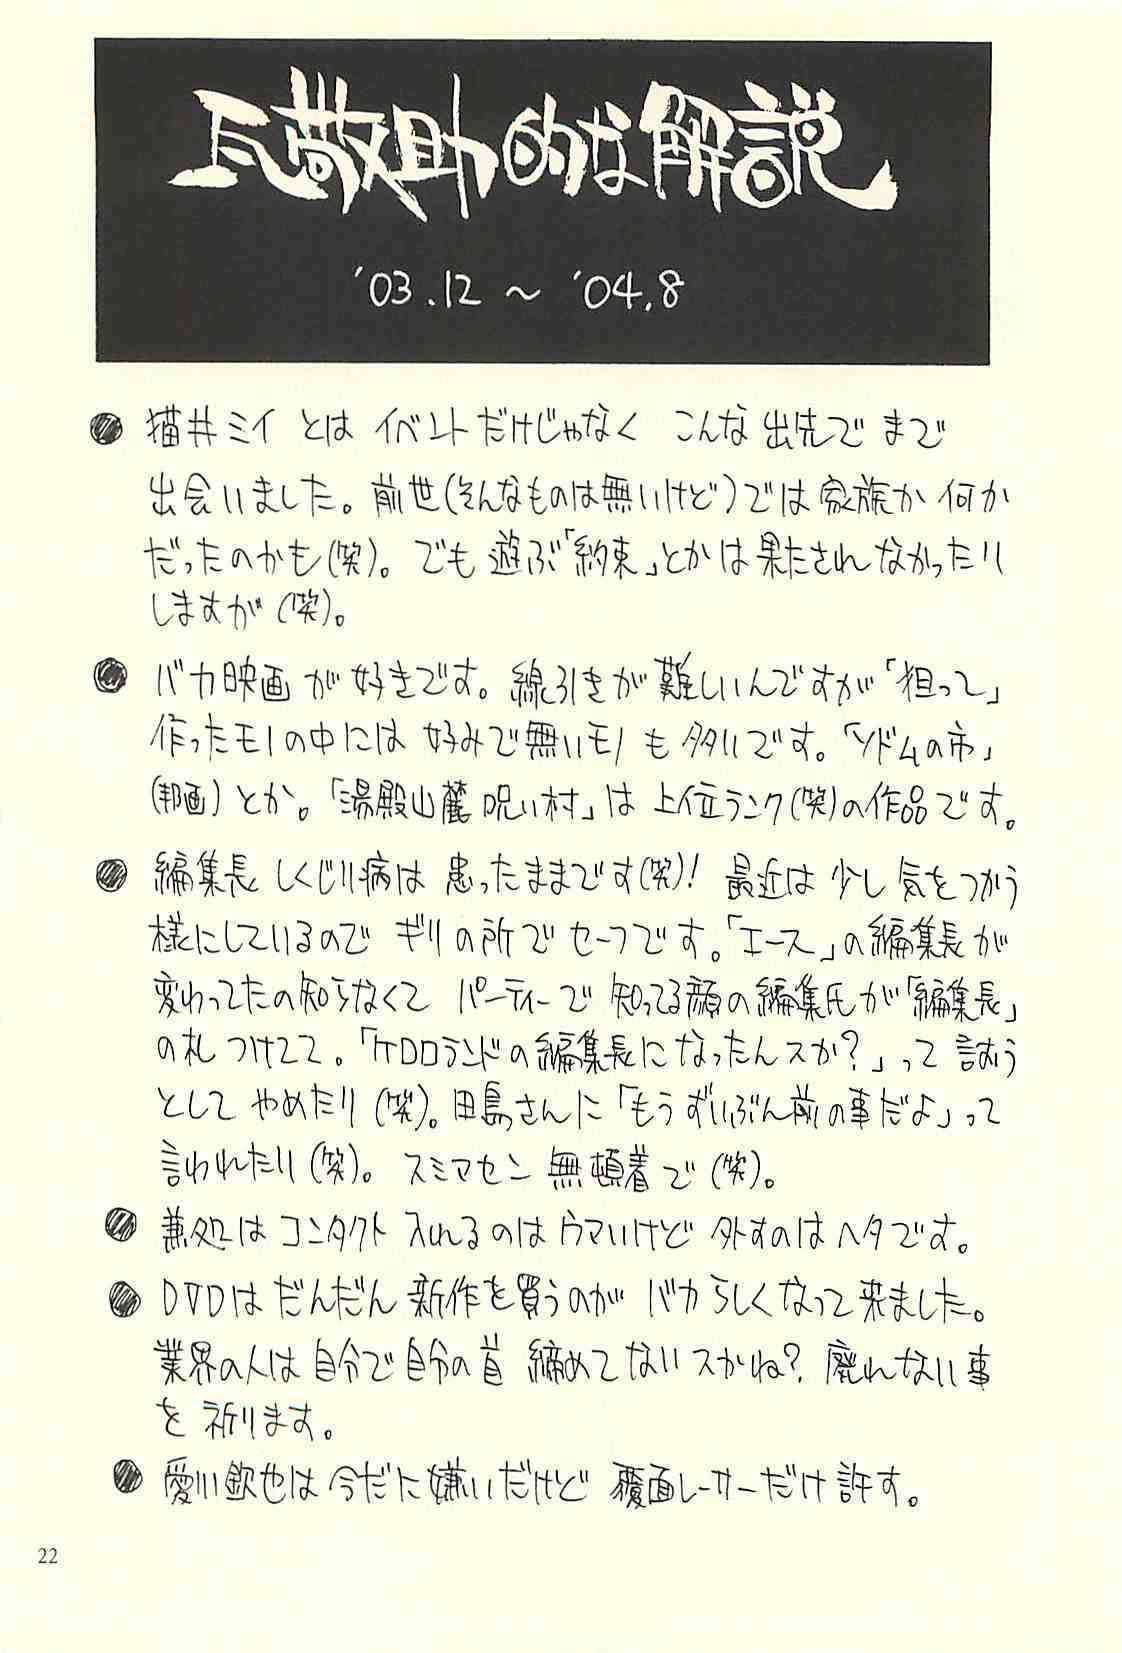 瓦敬助的な解説
'03.12 ～ '04.8
● 猫井ミイ とは イベントだけじゃなく こんな 出先で まで
出会いました。前世(そんなものは無いけど)では 家族か 何か
だったのかも(笑)。でも 遊ぶ「約束」とかは果たされなかったり
しますが(笑)。
● バカ映画 が 好きです。線引きが 難しいんですが「狙って」
作ったモノの中には 好みで無いモノ も 多いです。「ソドムの市」
(邦画)とか。「湯殿山麓 呪い村」は 上位ランク(笑)の作品です。
● 編集長 しくじり病は 患ったままです(笑)! 最近は 少し 気をつかう
様にしているので ギリの所で セーフです。「エース」の編集長が
変わってたの知らなくて パーティーで 知ってる顔の編集氏が「編集長」
の札 つけてて。「ケロロランドの編集長になったんスか?」って 言おう
として やめたり(笑)。田島さんに「もうずいぶん前の事だよ」って
言われたり(笑)。スミマセン 無頓着で(笑)。
● 兼処は コンタクト 入れるのは ウマいけど 外すのは ヘタです。
● DVDは だんだん 新作を買うのが バカらしくなって来ました。
業界の人は 自分で自分の首 締めてないスかね? 廃れない事
を 祈ります。
● 愛川欽也は 今だに嫌いだけど 覆面レーサーだけ 許す。
22